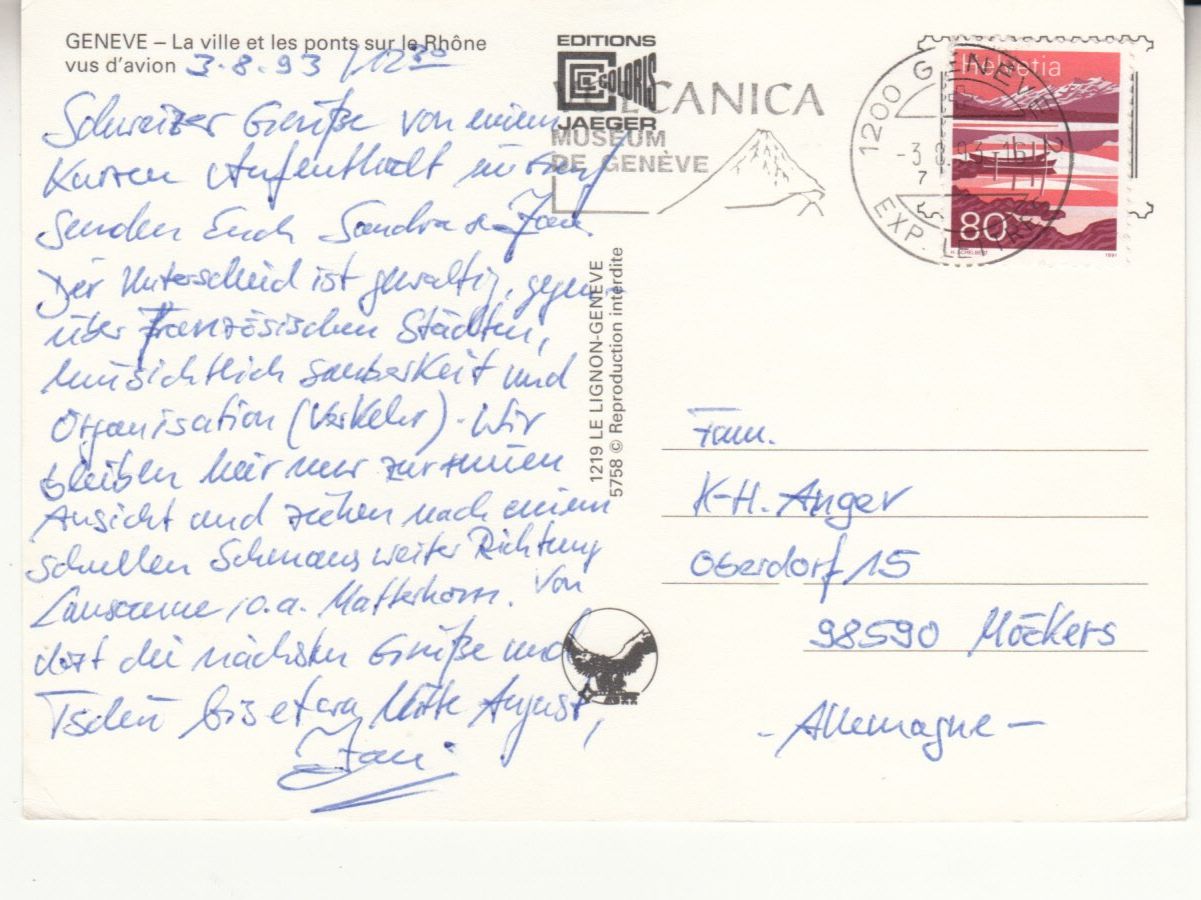 GENEVE – La ville et les ponts sur le Rhône
vus d'avion 3.8.93 / 12 30
Schweizer Grüße von einem
Kurzen Aufenthalt in Genf
senden Euch Sandra &
Der Unterschied ist gewaltig, gegen-
über Französischen Städten,
hinsichtlich Sauberkeit und
Organisation (Verkehr). Wir
bleiben hier nur zur
Ansicht und ziehen nach einem
schnellen Schmaus weiter Richtung
Lausanne o.a. Matterhorn. Von
dort die nächsten Grüße und
Tschü bis etwa Mitte August,
EDITIONS
COLORIS
JAEGER
VULCANICA
MUSEUM
DE GENÈVE
1200 GENEVE 2
-3.8.93-16
7
EXP. LETTRES
Helvetia
80
1991
1219 LE LIGNON-GENEVE
5758 © Reproduction interdite
Fam.
K-H. Anger
Oberdorf 15
98590 Möckers
- Allemagne -